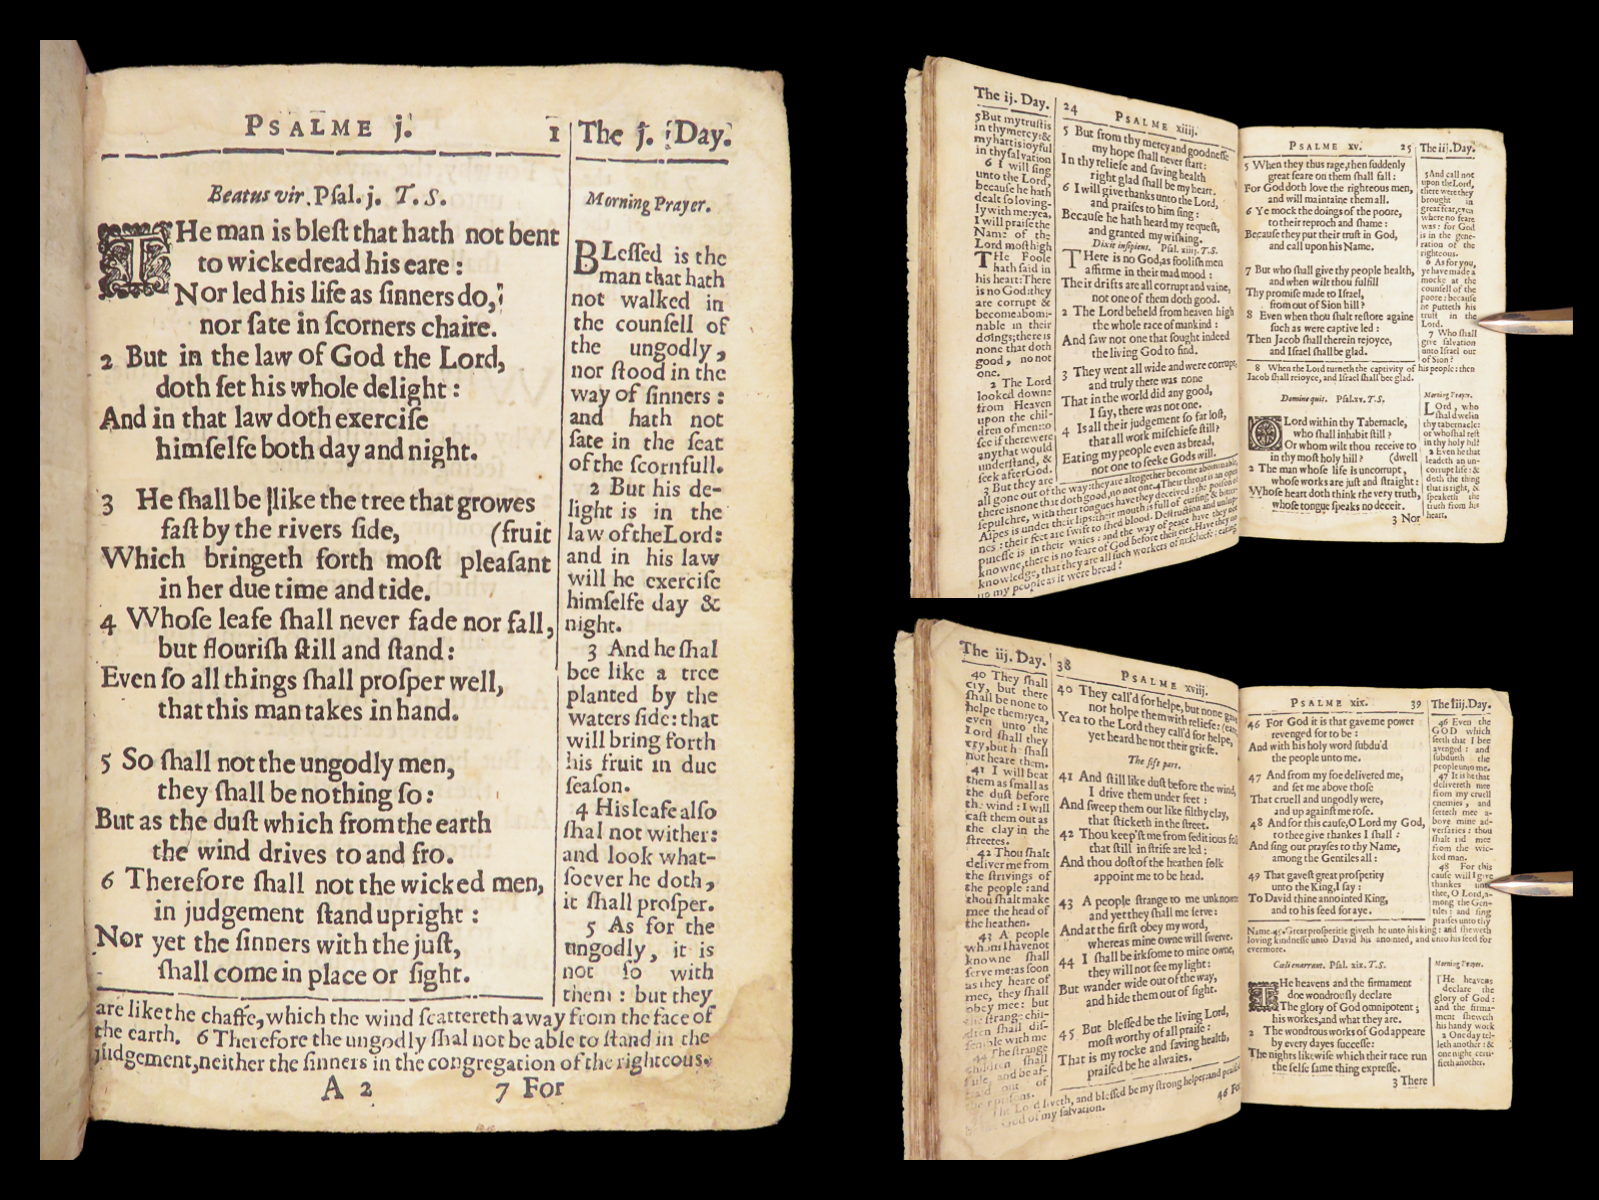 PSALME j. 1
The j. Day.
Beatus vir. Psal. j. T. S.
THe man is blest that hath not bent
to wicked read his eare:
Nor led his life as sinners do,
nor sate in scorners chaire.
2 But in the law of God the Lord,
doth set his whole delight:
And in that law doth exercise
himselfe both day and night.
3 He shall be like the tree that growes
fast by the rivers side, (fruit
Which bringeth forth most pleasant
in her due time and tide.
4 Whose leafe shall never fade nor fall,
but flourish still and stand:
Even so all things shall prosper well,
that this man takes in hand.
5 So shall not the ungodly men,
they shall be nothing so:
But as the dust which from the earth
the wind drives to and fro.
6 Therefore shall not the wicked men,
in judgement stand upright:
Nor yet the sinners with the just,
shall come in place or sight.
Morning Prayer.
BLessed is the
man that hath
not walked in
the counsell of
the ungodly,
nor stood in the
way of sinners:
and hath not
sate in the seat
of the scornfull.
2 But his de-
light is in the
law of the Lord:
and in his law
will he exercise
himselfe day &
night.
3 And he shal
bee like a tree
planted by the
waters side: that
will bring forth
his fruit in due
season.
4 His leafe also
shal not wither:
and look what-
soever he doth,
it shall prosper.
5 As for the
ungodly, it is
not so with
them: but they
are like the chaffe, which the wind scattereth away from the face of
the earth. 6 Therefore the ungodly shal not be able to stand in the
judgement, neither the sinners in the congregation of the righteous.
A 2 7 For
The ij. Day.
24 PSALME xiiij.
5 But my trust is
in thy mercy: &
my hart is ioyful
in thy salvation
6 I will sing
unto the Lord,
because he hath
dealt so loving-
ly with me: yea,
I will praise the
Name of the
Lord most high
THe Foole
hath said in
his heart: There
is no God: they
are corrupt &
become abomi-
nable in their
doings; there is
none that doth
good, no not
one.
2 The Lord
looked downe
from Heaven
upon the chil-
dren of men: to
see if there were
any that would
understand, &
seek after God.
3 But they are
5 But from thy mercy and goodnesse
my hope shall never start:
In thy reliefe and saving health
right glad shall be my heart.
6 I will give thanks unto the Lord,
and praises to him sing:
Because he hath heard my request,
and granted my wishing.
Dixit insipiens. Psal. xiiij. T. S.
THere is no God, as foolish men
affirme in their mad mood:
Their drifts are all corrupt and vaine,
not one of them doth good.
2 The Lord beheld from heaven high
the whole race of mankind:
And saw not one that sought indeed
the living God to find.
3 They went all wide and were corrupt,
and truly there was none
That in the world did any good,
I say, there was not one.
4 Is all their judgement so far lost,
that all work mischiefe still?
Eating my people even as bread,
not one to seeke Gods will.
all gone out of the way: they are altogether become abominable,
there is none that doth good, no not one. 4 Their throat is an open
sepulchre, with their tongues have they deceived: the poison of
Aspes is under their lips: their mouth is full of cursing & bitter-
nes: their feet are swift to shed blood. Destruction and
is in their waies: and the way of peace have they not
knowne, there is no feare of God before their eies. Have they no
knowledge, that they are all such workers of mischiefe: eating
up my people as it were bread?
PSALME xv. 25
The iij. Day.
5 When they thus rage, then suddenly
great feare on them shall fall:
For God doth love the righteous men,
and will maintaine them all.
6 Ye mock the doings of the poore,
to their reproch and shame:
Because they put their trust in God,
and call upon his Name.
7 But who shall give thy people health,
and when wilt thou fulfill
Thy promise made to Israel,
from out of Sion hill?
8 Even when thou shalt restore againe
such as were captive led:
Then Jacob shall therein rejoyce,
and Israel shall be glad.
5 And call not
upon the Lord,
there were they
brought in
great fear, even
where no feare
was: for God
is in the gene-
ration of the
righteous.
6 As for you,
ye have made a
mocke at the
counsell of the
poore: because
he putteth his
trust in the
Lord.
7 Who shall
give salvation
unto Israel out
of Sion?
8 When the Lord turneth the captivity of his people: then
Jacob shall rejoyce, and Israel shall be glad.
Domine quis. Psal. xv. T. S.
O Lord within thy Tabernacle,
who shall inhabit still?
Or whom wilt thou receive to
in thy most holy hill? (dwell
2 The man whose life is uncorrupt,
whose works are just and straight:
Whose heart doth think the very truth,
whose tongue speaks no deceit.
3 Nor
Morning Prayer.
LOrd, who
shal dwel in
thy tabernacle?
or who shal rest
in thy holy hill?
2 Even he that
leadeth an un-
corrupt life: &
doth the thing
that is right, &
speaketh the
truth from his
heart.
The iij. Day.
38 PSALME xviij.
40 They shall
cry, but there
shall be none to
helpe them: yea,
even unto the
Lord shall they
cry, but h shall
not heare them.
41 I will beat
them as small as
the dust before
the wind: I will
cast them out as
the clay in the
streetes.
42 Thou shalt
deliver me from
the strivings of
the people: and
thou shalt make
mee the head of
the heathen.
43 A people
whom I have not
knowne shall
serve me: as soon
as they heare of
mee, they shall
obey mee: but
the strange chil-
dren shall dis-
semble with me
44 The strange
children shall
faile, and be af-
raid out of
their prisons.
40 They call'd for helpe, but none gave
nor holpe them with reliefe: (eare,
Yea to the Lord they call'd for helpe,
yet heard he not their griefe.
The fift part.
41 And still like dust before the wind,
I drive them under feet:
And sweep them out like filthy clay,
that sticketh in the street.
42 Thou keep'st me from seditious folk
that still in strife are led:
And thou dost of the heathen folk
appoint me to be head.
43 A people strange to me unknown
and yet they shall me serve:
And at the first obey my word,
whereas mine owne will swerve.
44 I shall be irksome to mine owne,
they will not see my light:
But wander wide out of the way,
and hide them out of sight.
45 But blessed be the living Lord,
most worthy of all praise:
That is my rocke and saving health,
praised be he alwaies.
The Lord liveth, and blessed be my strong helper: and praised
God of my salvation. 46 For
PSALME xix. 39
The iiij. Day.
46 For God it is that gave me power
revenged for to be:
And with his holy word subdu'd
the people unto me.
47 And from my foe delivered me,
and set me above those
That cruell and ungodly were,
and up against me rose.
48 And for this cause, O Lord my God,
to thee give thankes I shall:
And sing out prayses to thy Name,
among the Gentiles all:
49 That gavest great prosperity
unto the King, I say:
To David thine annointed King,
and to his seed for aye.
46 Even the
GOD which
seeth that I bee
avenged: and
subdueth the
people unto me.
47 It is he that
delivereth mee
from my cruell
enemies, and
setteth mee a-
bove mine ad-
versaries: thou
shalt rid mee
from the wic-
ked man.
48 For this
cause will I give
thankes unto
thee, O Lord, a-
mong the Gen-
tiles: and sing
praises unto thy
Name. 49 Great prosperitie giveth he unto his king: and sheweth
loving kindnesse unto David his anointed, and unto his seed for
evermore.
Cœli enarrant. Psal. xix. T. S.
THe heavens and the firmament
doe wondrously declare
The glory of God omnipotent;
his workes, and what they are.
2 The wondrous works of God appeare
by every dayes successe:
The nights likewise which their race run
the selfe same thing expresse.
3 There
Morning Prayer.
THe heavens
declare the
glory of God:
and the firma-
ment sheweth
his handy work
2 One day tel-
leth another: &
one night certi-
fieth another.